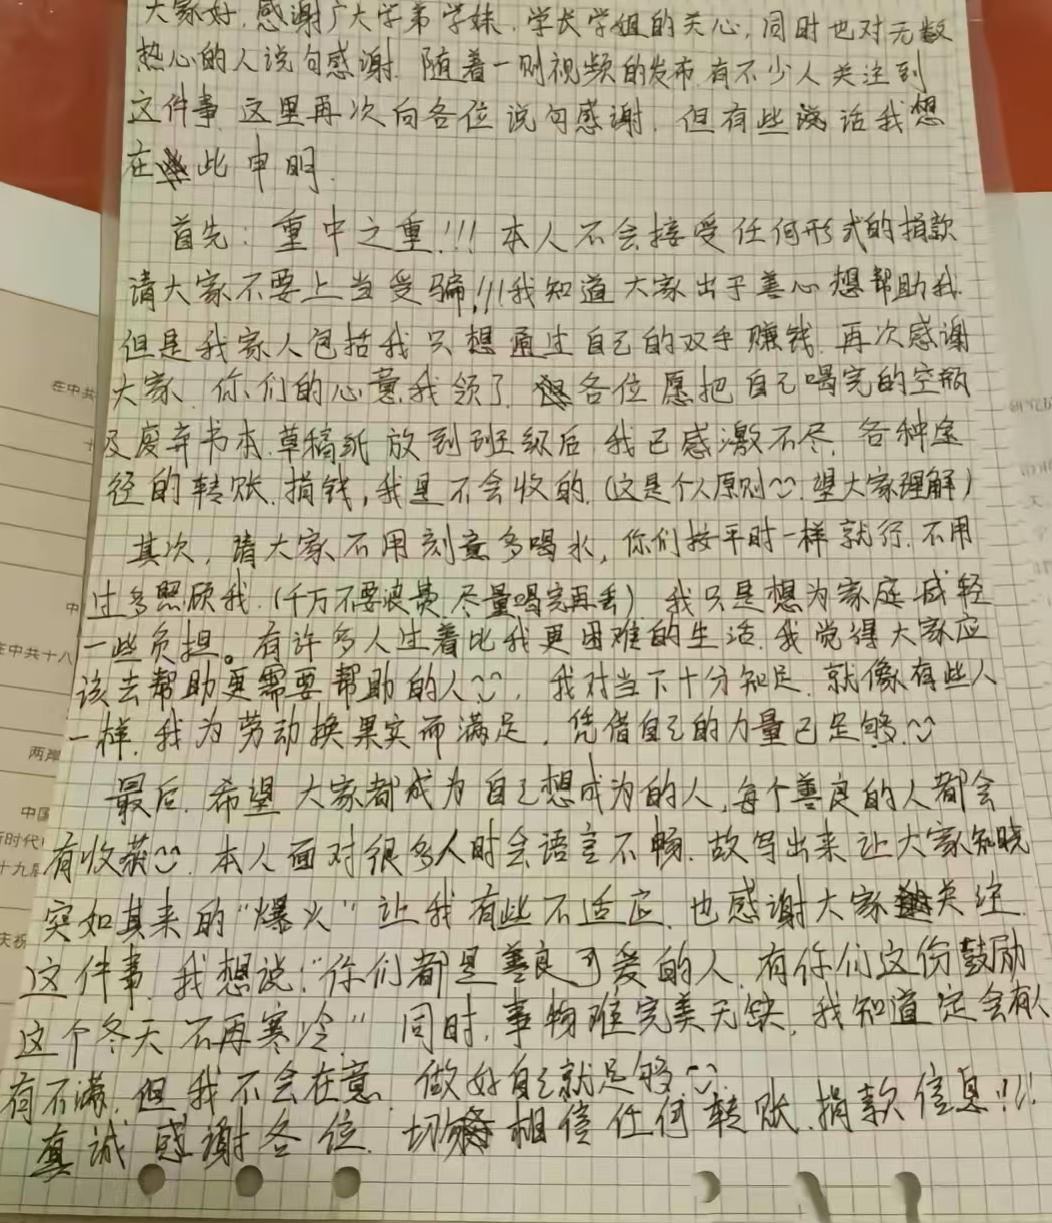 大家好，感谢广大学弟学妹、学长学姐的关心，同时也对无数
热心的人说句感谢. 随着一则视频的发布,有不少人关注到
这件事, 这里再次向各位说句感谢. 但有些话我想
在此申明.
首先：重中之重!!! 本人不会接受任何形式的捐款
请大家不要上当受骗!!!我知道大家出于善心想帮助我.
但是我家人包括我只想通过自己的双手赚钱. 再次感谢
大家. 你们的心意我领了. 各位愿把自己喝完的空瓶
及废弃书本.草稿纸放到班级后,我已感激不尽. 各种途
径的转账.捐钱,我是不会收的.(这是个人原则. 望大家理解)
其次, 请大家不用刻意多喝水, 你们按平时一样就行.不用
过多照顾我.(千万不要浪费.尽量喝完再丢) 我只是想为家庭减轻
一些负担。有许多人过着比我更困难的生活.我觉得大家应
该去帮助更需要帮助的人. 我对当下十分知足. 就像有些人
一样. 我为劳动换果实而满足. 凭借自己的力量已足够.
最后. 希望大家都成为自己想成为的人,每个善良的人都会
有收获. 本人面对很多人时会语言不畅. 故写出来让大家知晓
突如其来的“爆火”让我有些不适应. 也感谢大家关注
这件事. 我想说:“你们都是善良可爱的人.有你们这份鼓励
这个冬天不再寒冷.” 同时,事物难完美无缺. 我知道定会有人
有不满. 但我不会在意. 做好自己就足够.
真诚感谢各位. 切相信任何转账.捐款信息!!!
在中共
中
在中共十八
两岸
中国
新时代
十九届
庆祝